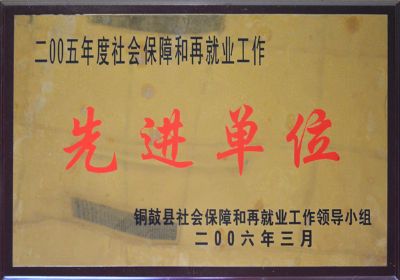 二00五年度社会保障和再就业工作
先进单位
铜鼓县社会保障和再就业工作领导小组
二00六年三月